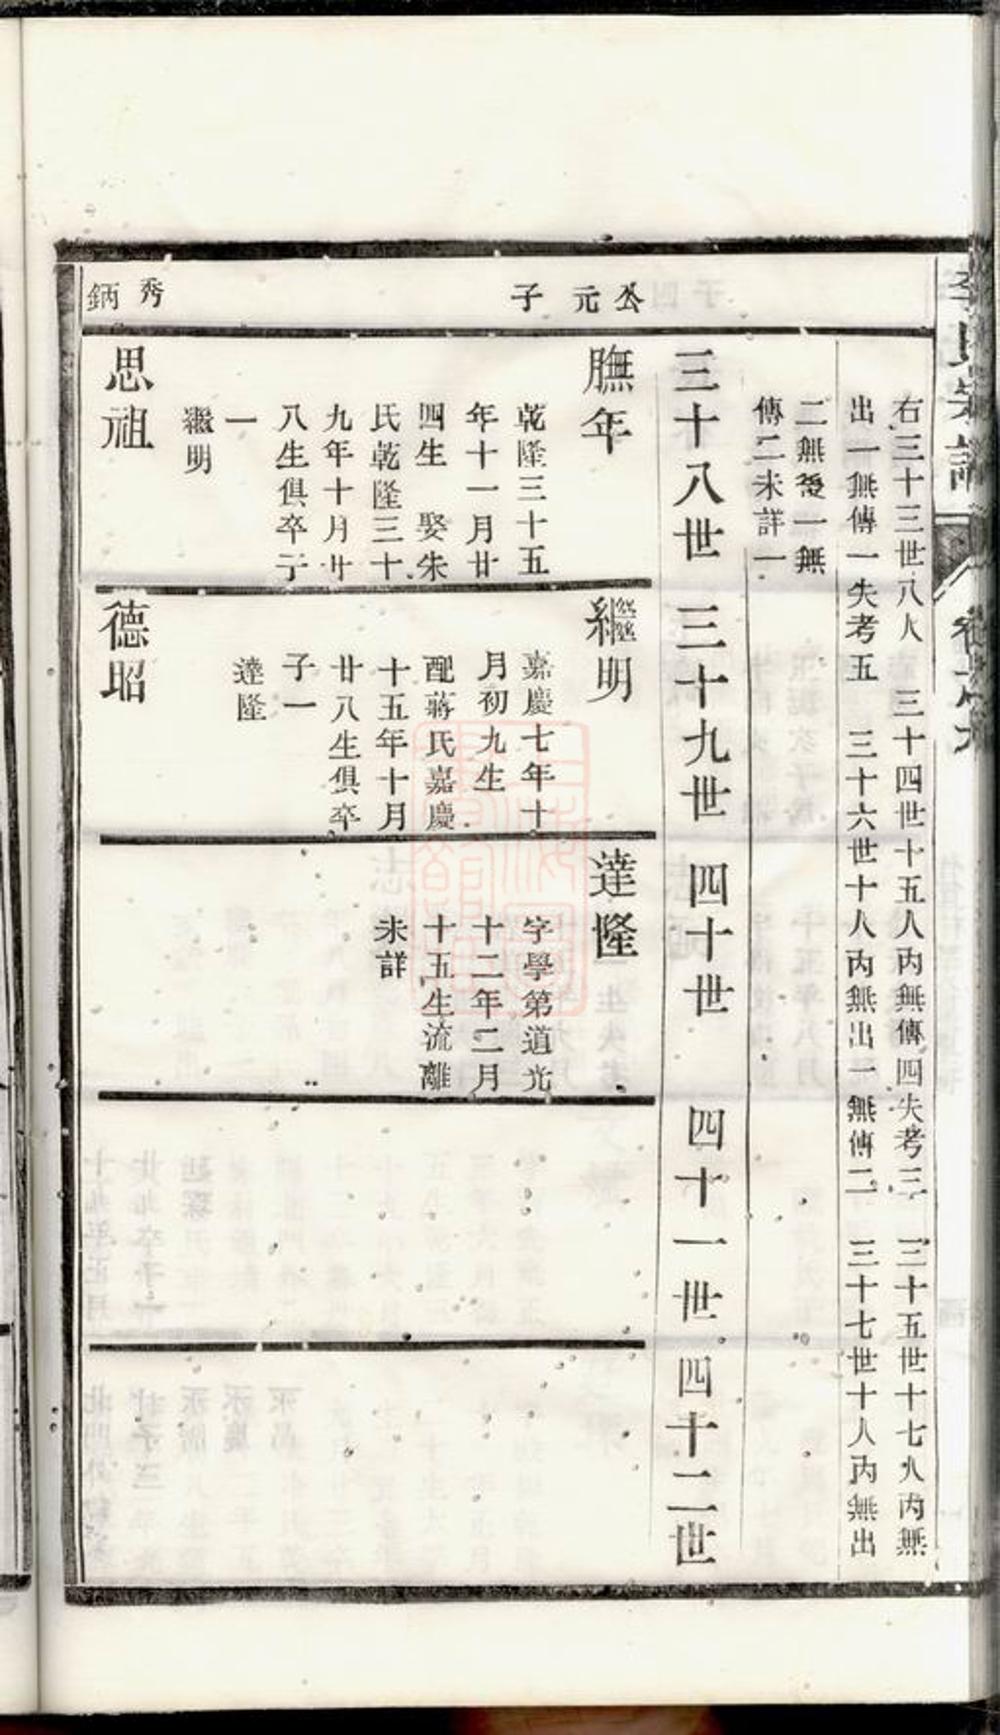 李氏宗譜
卷之六
右三十三世八人 三十四世十五人內無傳四失考三 三十五世十七人內無
出一無傳一失考五 三十六世十人內無出一無傳二 三十七世十人內無出
二無後一無
傳二未詳一
三十八世 三十九世 四十世 四十一世 四十二世
公元子
膴年
乾隆三十五
年十一月廿
四生 娶朱
氏乾隆三十
九年十月廿
八生俱卒子
一
繼明
繼明
嘉慶七年十
月初九生
配蔣氏嘉慶
十五年十月
廿八生俱卒
子一
達隆
達隆
字學第道光
十二年二月
十五生流離
未詳
秀鈵
思祖
德昭